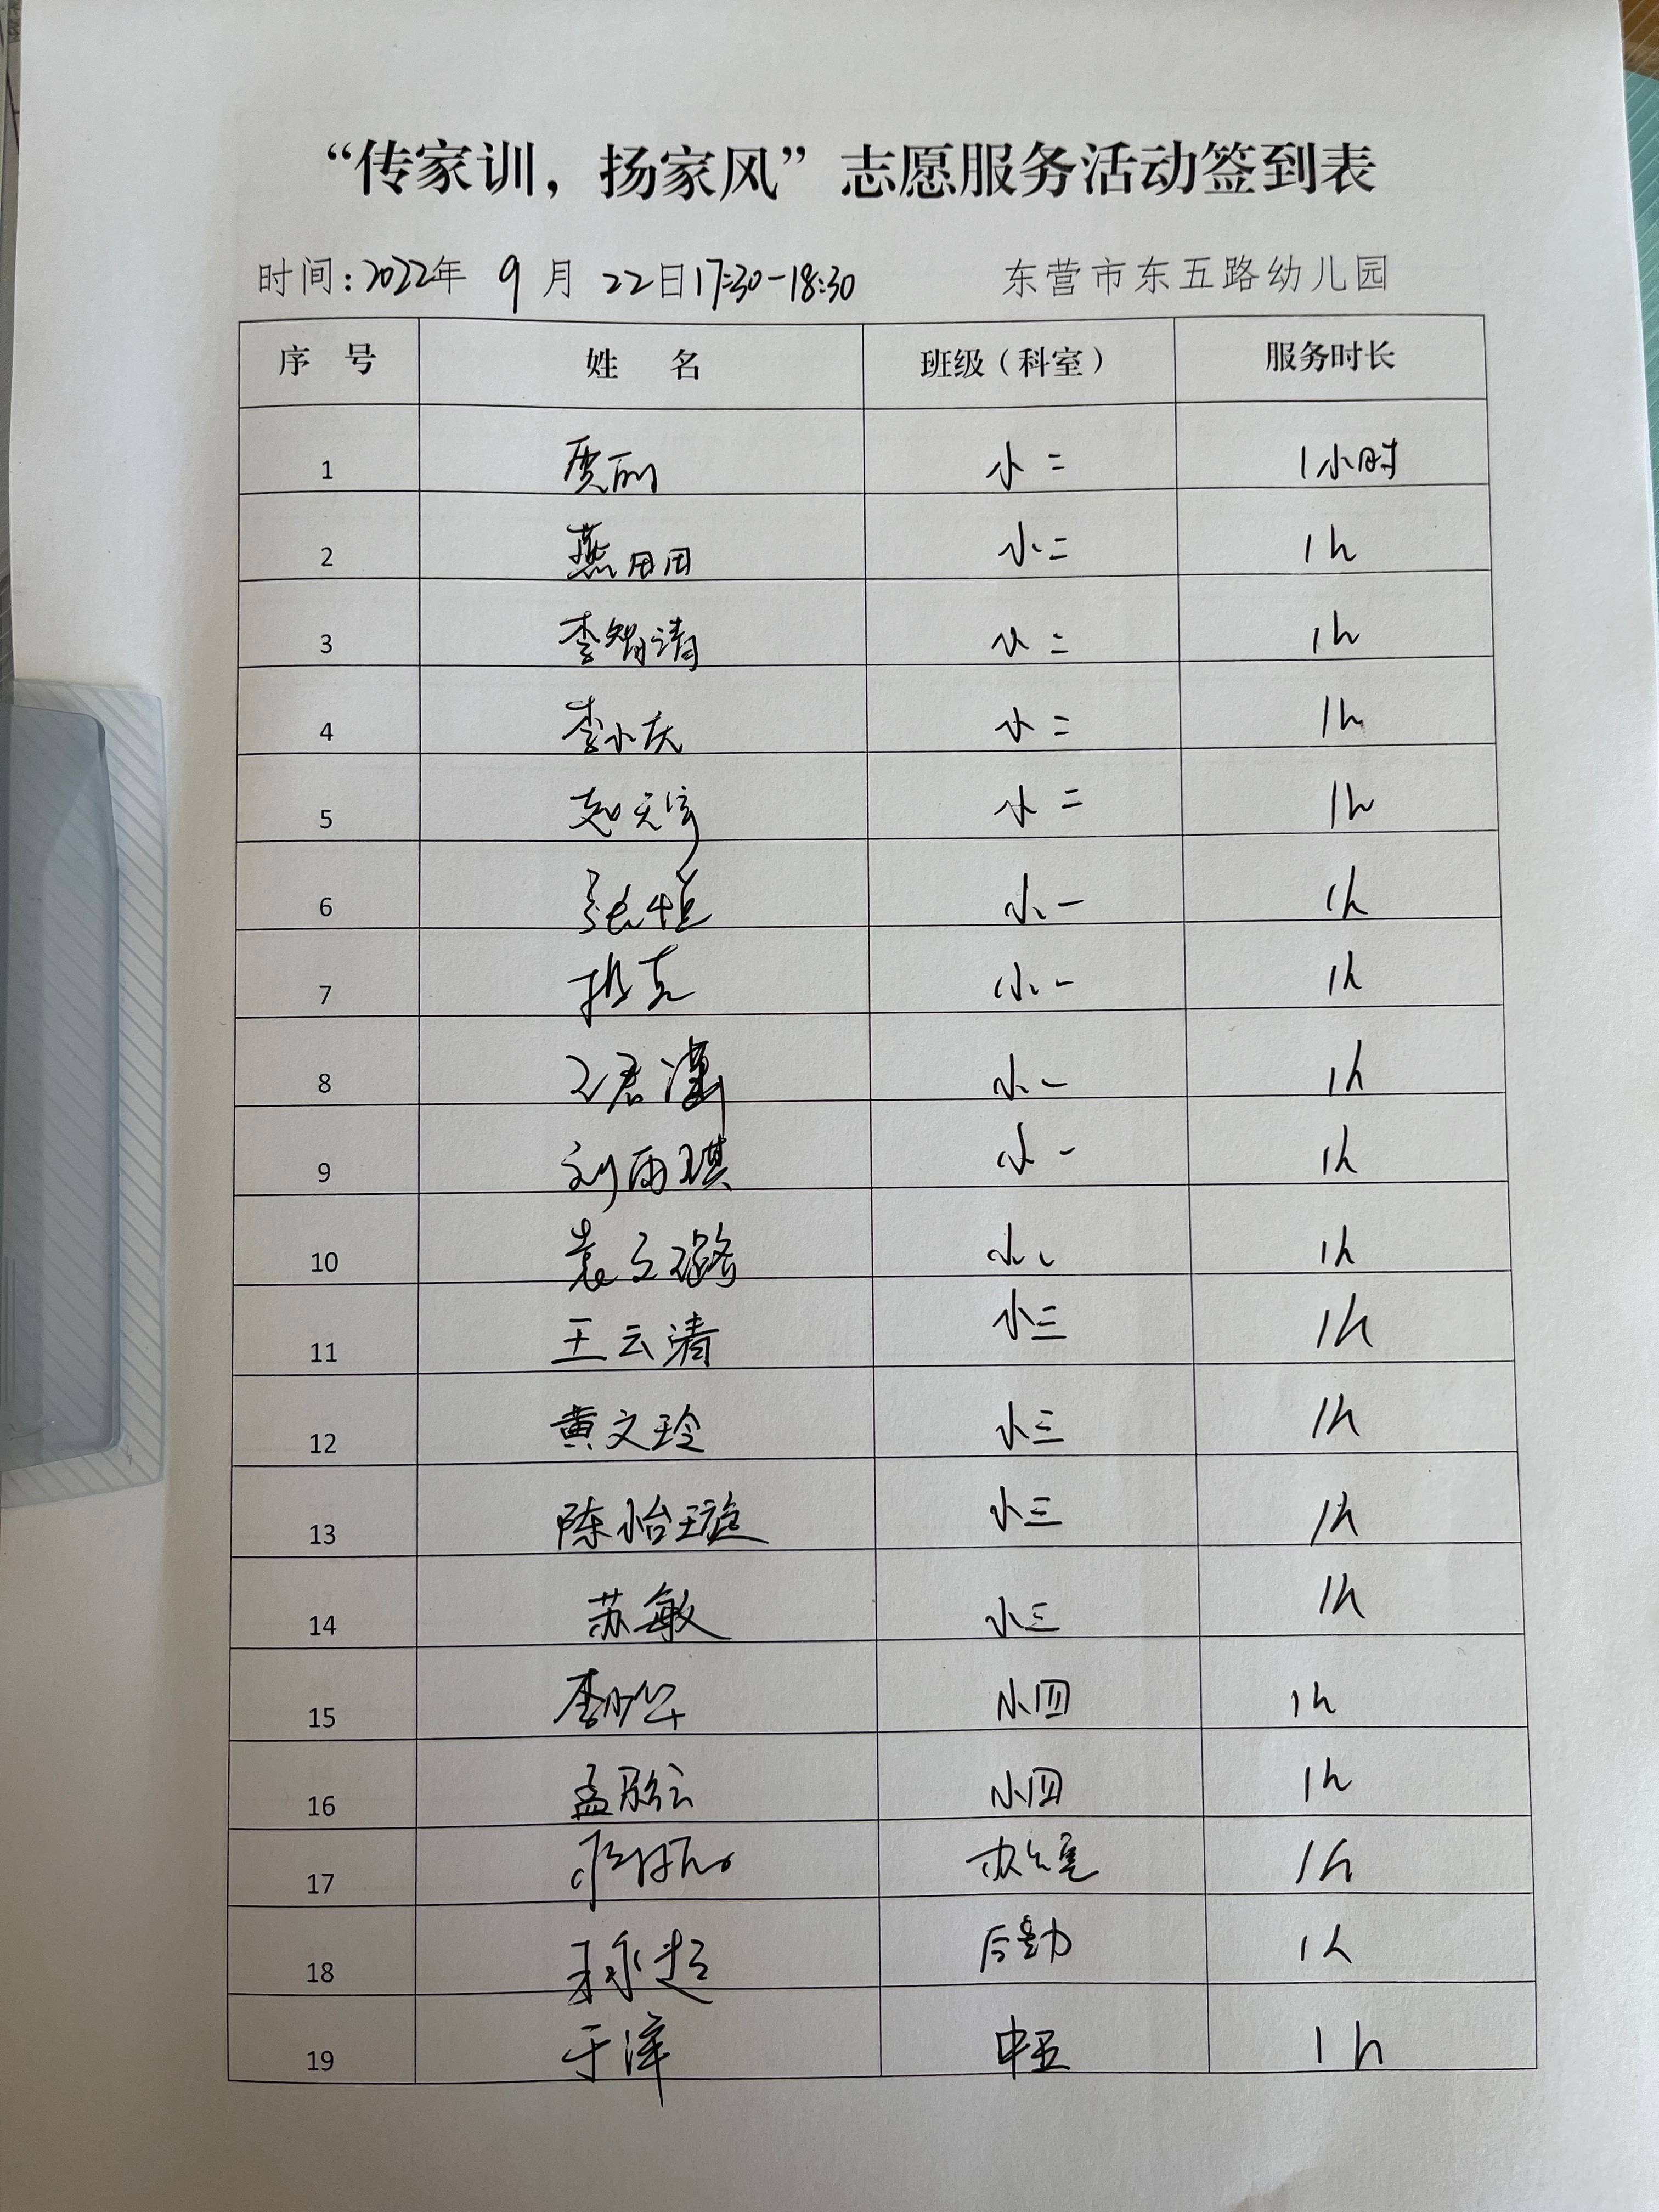 “传家训，扬家风”志愿服务活动签到表
时间：2022年 9 月 22日17:30-18:30 东营市东五路幼儿园
序 号 姓 名 班级（科室） 服务时长
1 贾丽 小二 1小时
2 燕田田 小二 1h
3 李智清 小二 1h
4 李小庆 小二 1h
5 赵天宇 小二 1h
6 张恒 小一 1h
7 小一 1h
8 王君潇 小一 1h
9 刘雨琪 小一 1h
10 袁文璐 小一 1h
11 王云清 小三 1h
12 黄文玲 小三 1h
13 陈怡璇 小三 1h
14 苏敏 小三 1h
15 小四 1h
16 小四 1h
17 办公室 1h
18 后勤 1h
19 于洋 中五 1h